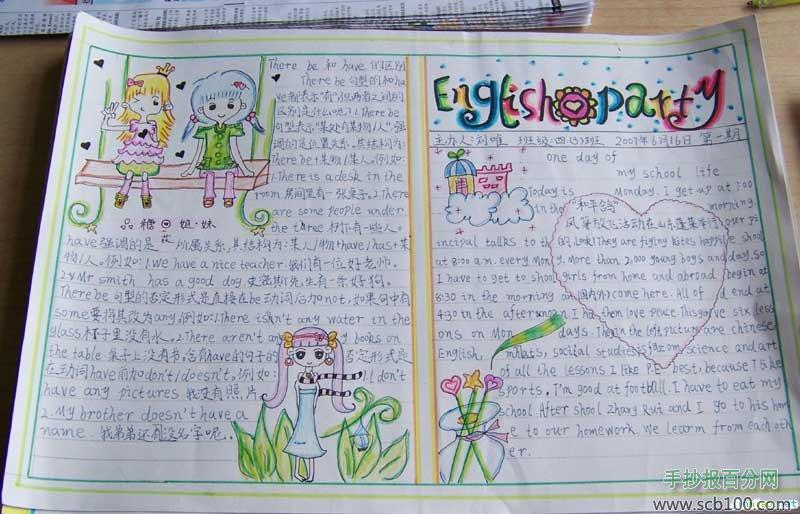 There be 和 have 的区别
There be 句型的和ha
ve 都表示"有"但两者之间的
区别是什么呢?1.There
be 句型表示"某处有某物/人"强
调的是位置关系,其结构为:
There be+某物/某人。例如:
1.There is a desk in the
room 房间里有一张桌子。2.There
are some people under
the tree 树下有一些人。
品糖 姐·妹
have 强调的是 所属关系,其结构为:某人/物+have/has+某
物/人。例如:1.We have a nice teacher.我们有一位好老师。
2.Mr Smith has a good dog 史密斯先生有一条好狗。
There be 句型的否定形式是直接在be动词后加not,如果句中有
some要将其改为any.例如:1.There isn't any water in the
glass 杯子里没有水。2.There aren't any books on
the table 桌子上没有书。含有have的句子的否定形式是
在动词have前加don't/doesn't。例如:1.I don't
have any pictures 我没有照片
2.My brother doesn't have a
name. 我弟弟还没名字呢。
English party
主办人:刘唯 班级四(5)班 2007年6月16日 第一期
one day of
my school life
Today is Monday. I get up at 7:00
in the morning.
"和平鸽"
风筝放飞活动在山东蓬莱举行
incipal talks to the
Look! They are flying kites happily
at 8:00 a.m. every Mon
More than 2,000 young boys and
day. So
I have to get to shool
girls from home and abroad
begin at
8:30 in the morning an
国内外 come here. All of
d end at
4:30 in the afternoon
them love peace.
This gave six less
ons on Mondays. They in the left picture are chinese
English, maths, social studies, science and art
of all the lessons I like P.E best, because I like
sports. I'm good at football. I have to eat my
school After shool Zhang Rui and I go to his hom
e to our homework. We learn from each oth
er.
手抄报百分网
www.scb100.com